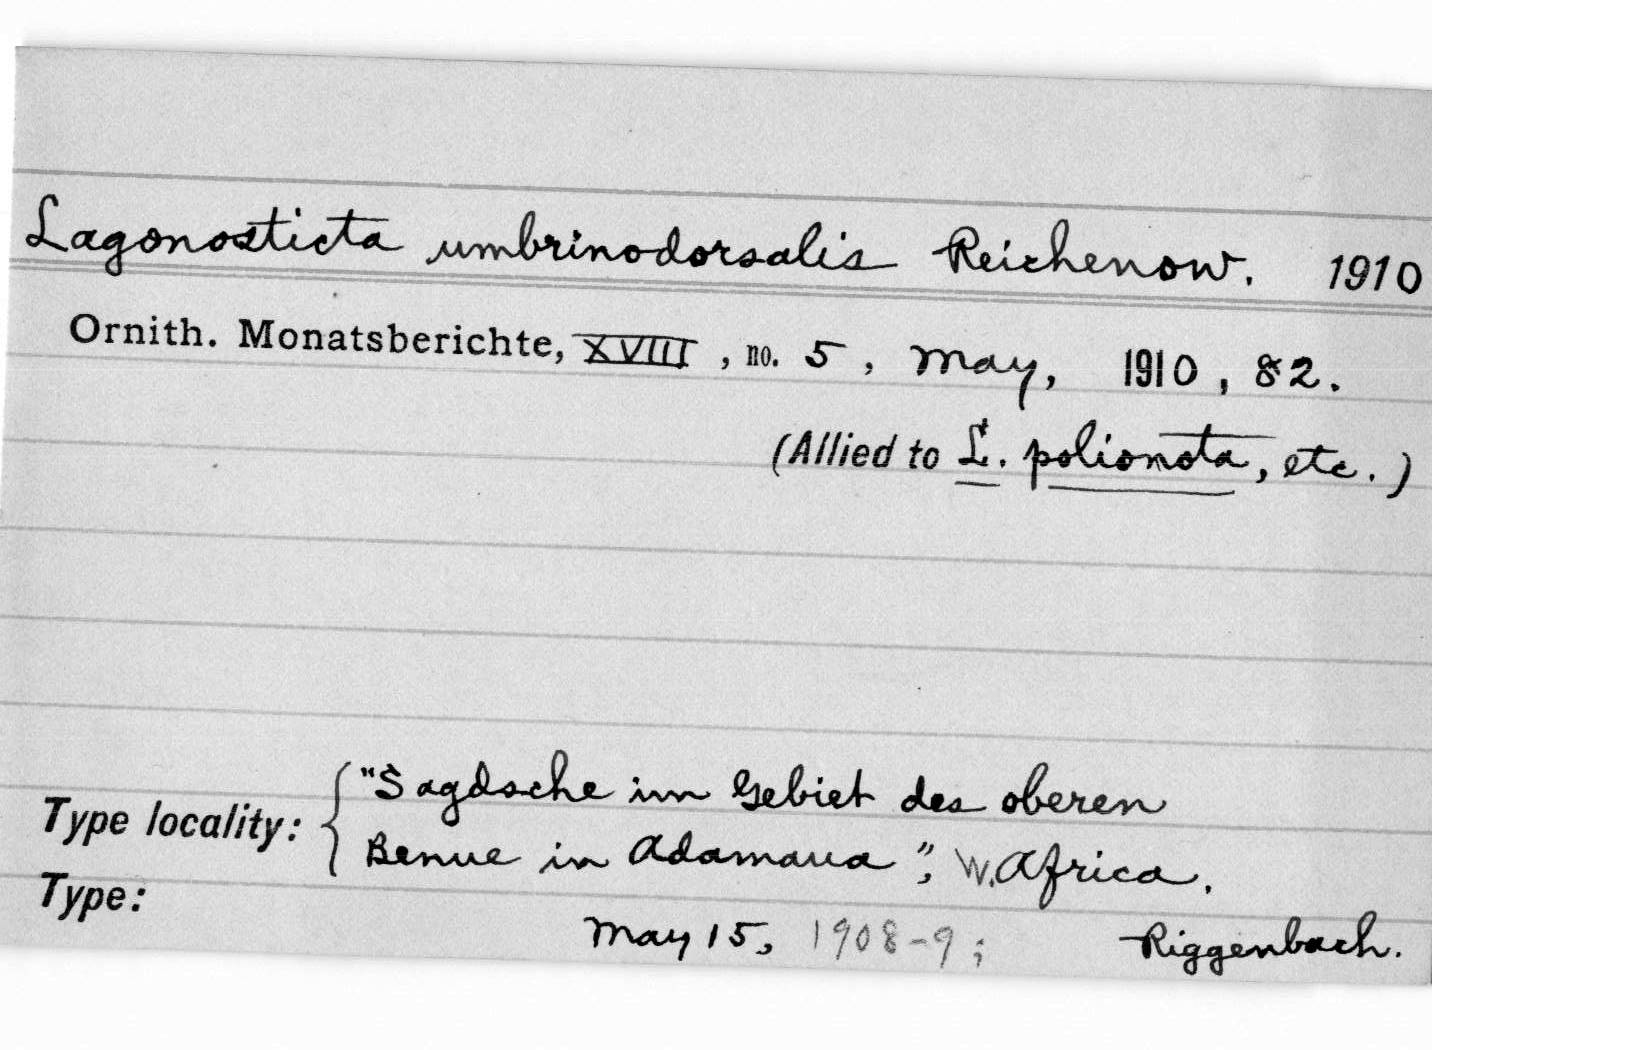 Lagonosticta umbrinodorsalis Reichenow. 1910
Ornith. Monatsberichte, XVIII, no. 5, May, 1910, 82.
(Allied to L. polionota, etc.)
Type locality: { "Sagdsche im Gebiet des oberen
Benue in Adamaua", W. Africa.
Type:
May 15, 1908-9; Riggenbach.